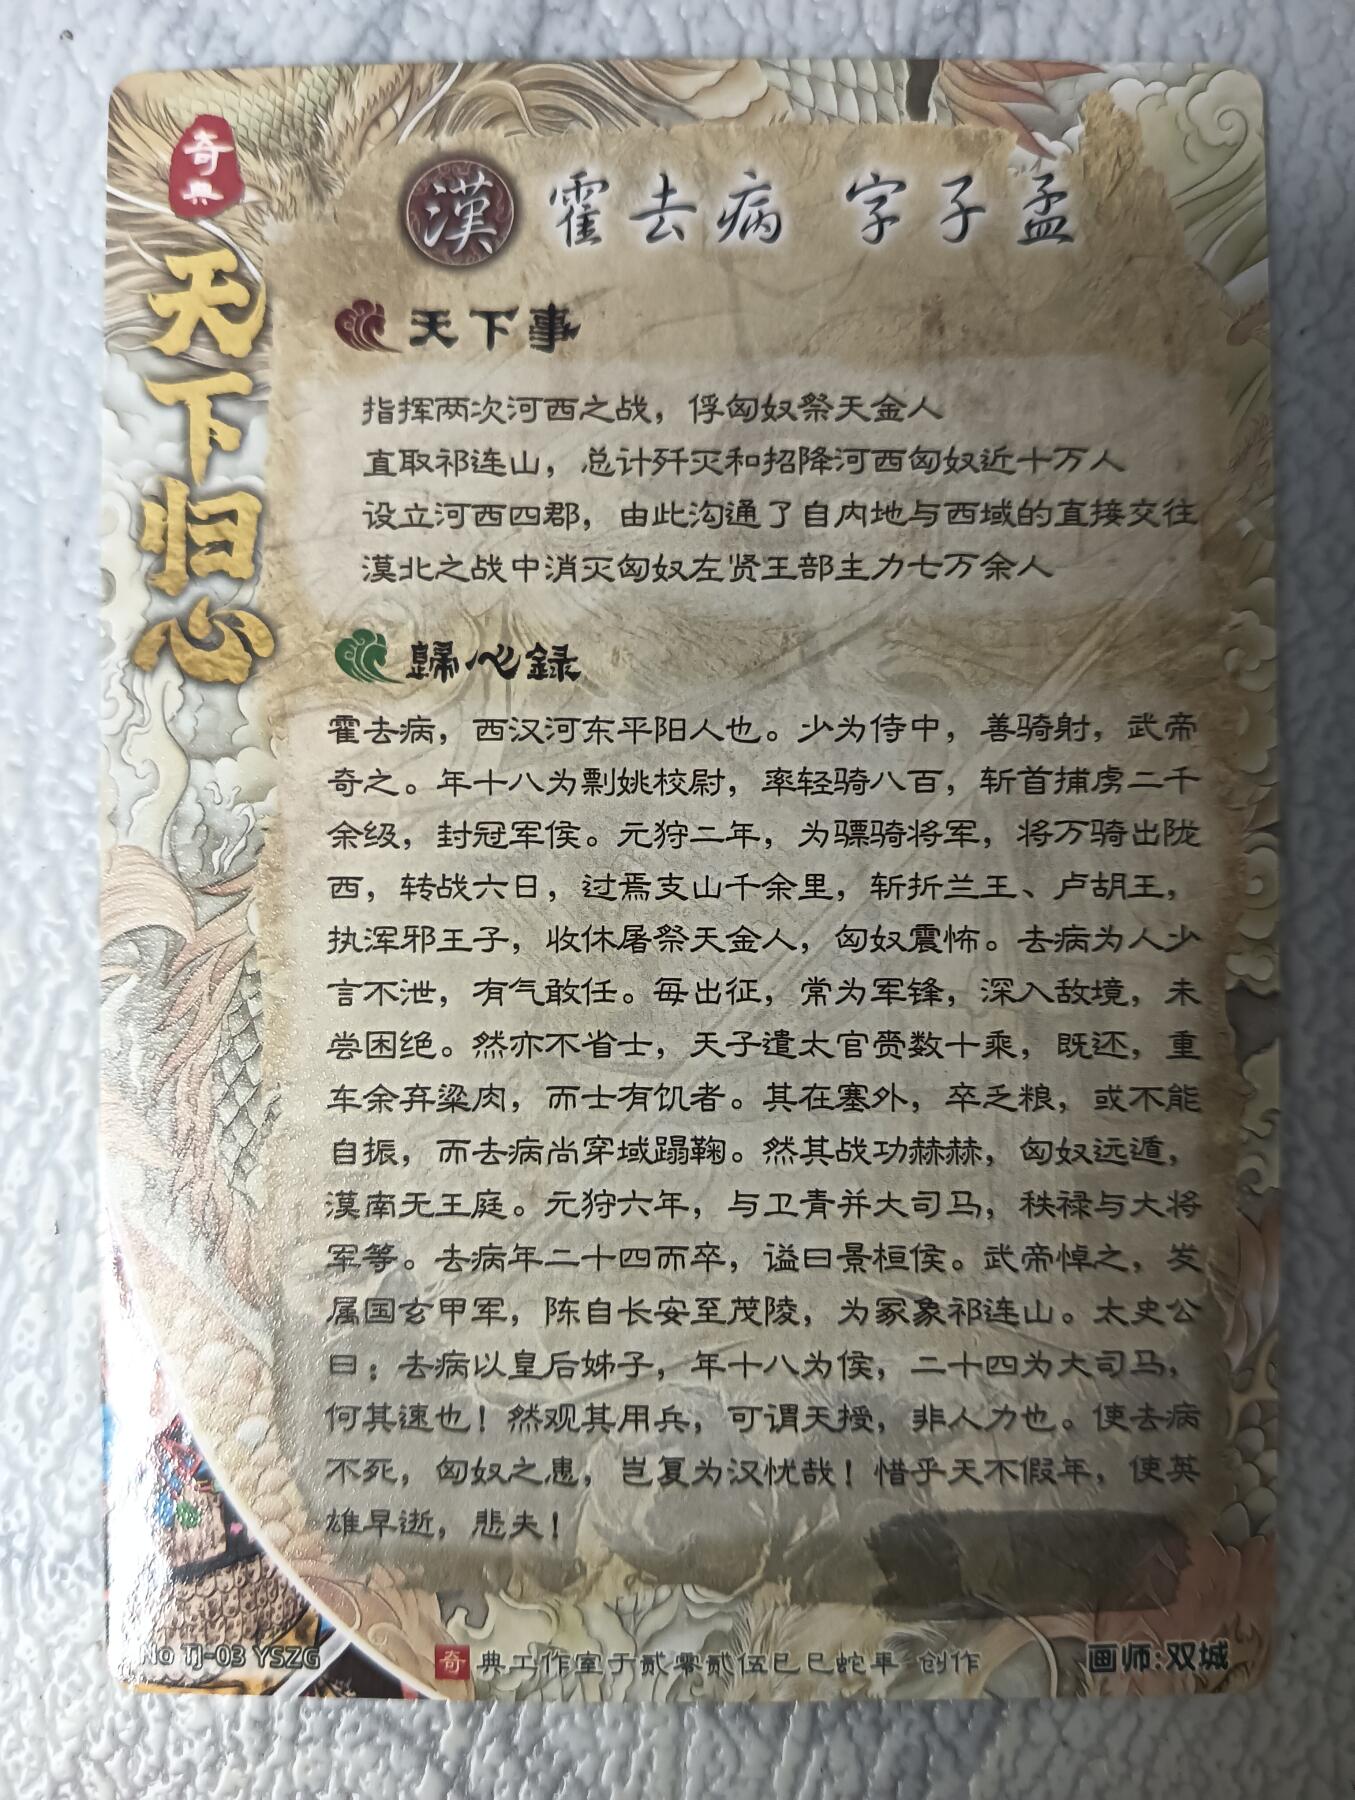 奇典
天下归心
漢 霍去病 字子孟
天下事
指挥两次河西之战，俘匈奴祭天金人
直取祁连山，总计歼灭和招降河西匈奴近十万人
设立河西四郡，由此沟通了自内地与西域的直接交往
漠北之战中消灭匈奴左贤王部主力七万余人
歸心録
霍去病，西汉河东平阳人也。少为侍中，善骑射，武帝
奇之。年十八为剽姚校尉，率轻骑八百，斩首捕虏二千
余级，封冠军侯。元狩二年，为骠骑将军，将万骑出陇
西，转战六日，过焉支山千余里，斩折兰王、卢胡王，
执浑邪王子，收休屠祭天金人，匈奴震怖。去病为人少
言不泄，有气敢任。每出征，常为军锋，深入敌境，未
尝困绝。然亦不省士，天子遣太官赍数十乘，既还，重
车余弃粱肉，而士有饥者。其在塞外，卒乏粮，或不能
自振，而去病尚穿域蹋鞠。然其战功赫赫，匈奴远遁，
漠南无王庭。元狩六年，与卫青并大司马，秩禄与大将
军等。去病年二十四而卒，谥曰景桓侯。武帝悼之，发
属国玄甲军，陈自长安至茂陵，为冢象祁连山。太史公
曰：去病以皇后姊子，年十八为侯，二十四为大司马，
何其速也！然观其用兵，可谓天授，非人力也。使去病
不死，匈奴之患，岂复为汉忧哉！惜乎天不假年，使英
雄早逝，悲夫！
No TJ-03 YSZG
奇典工作室于贰零贰伍巳巳蛇年 创作
画师:双城